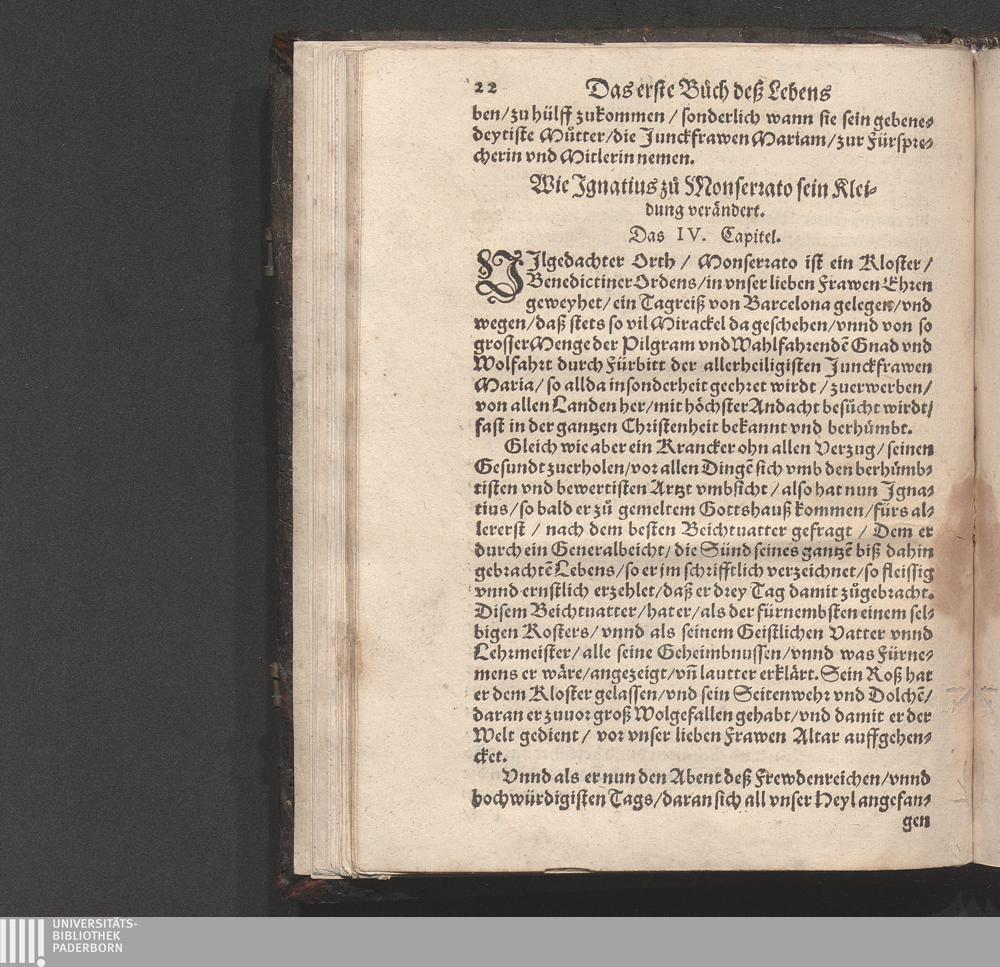 22 Das erste Bůch deß Lebens
ben/zu hülff zukommen / sonderlich wann sie sein gebene⸗
deytiste Můtter/die Junckfrawen Mariam/zur Fürspre⸗
cherin vnd Mitlerin nemen.
Wie Ignatius zů Monserrato sein Klei⸗
dung verändert.
Das IV. Capitel.
VIlgedachter Orth / Monserrato ist ein Kloster/
Benedictiner Ordens/in vnser lieben Frawen Ehren
geweyhet/ein Tagreiß von Barcelona gelegen/vnd
wegen/daß stets so vil Mirackel da geschehen/vnnd von so
grosser Menge der Pilgram vnd Wahlfahrendē Gnad vnd
Wolfahrt durch Fürbitt der allerheiligisten Junckfrawen
Maria/so allda in sonderheit geehret wirdt/zuerwerben/
von allen Landen her/mit höchster Andacht besůcht wirdt/
fast in der gantzen Christenheit bekannt vnd berhümbt.
Gleich wie aber ein Krancker ohn allen Verzug/seinen
Gesundt zuerholen/vor allen Dingē sich vmb den berhümb⸗
tisten vnd bewertisten Artzt vmbsicht/also hat nun Igna⸗
tius/so bald er zů gemeltem Gottshauß kommen/fürs al⸗
lererst / nach dem besten Beichtuatter gefragt / Dem er
durch ein Generalbeicht/die Sünd seines gantzē biß dahin
gebrachtē Lebens/so er jm schrifftlich verzeichnet/so fleissig
vnnd ernstlich erzehlet/daß er drey Tag damit zůgebracht.
Disem Beichtuatter/hat er/als der fürnembsten einem sel⸗
bigen Kosters/vnnd als seinem Geistlichen Vatter vnnd
Lehrmeister/alle seine Geheimbnussen/vnnd was Fürne⸗
mens er wäre/angezeigt/vn̄ lautter erklärt. Sein Roß hat
er dem Kloster gelassen/vnd sein Seitenwehr vnd Dolchē/
daran er zuuor groß Wolgefallen gehabt/vnd damit er der
Welt gedient / vor vnser lieben Frawen Altar auffgehen⸗
cket.
Vnnd als er nun den Abent deß Frewdenreichen/vnnd
hochwürdigisten Tags/daran sich all vnser Heyl angefan⸗
gen
UNIVERSITÄTS-
BIBLIOTHEK
PADERBORN